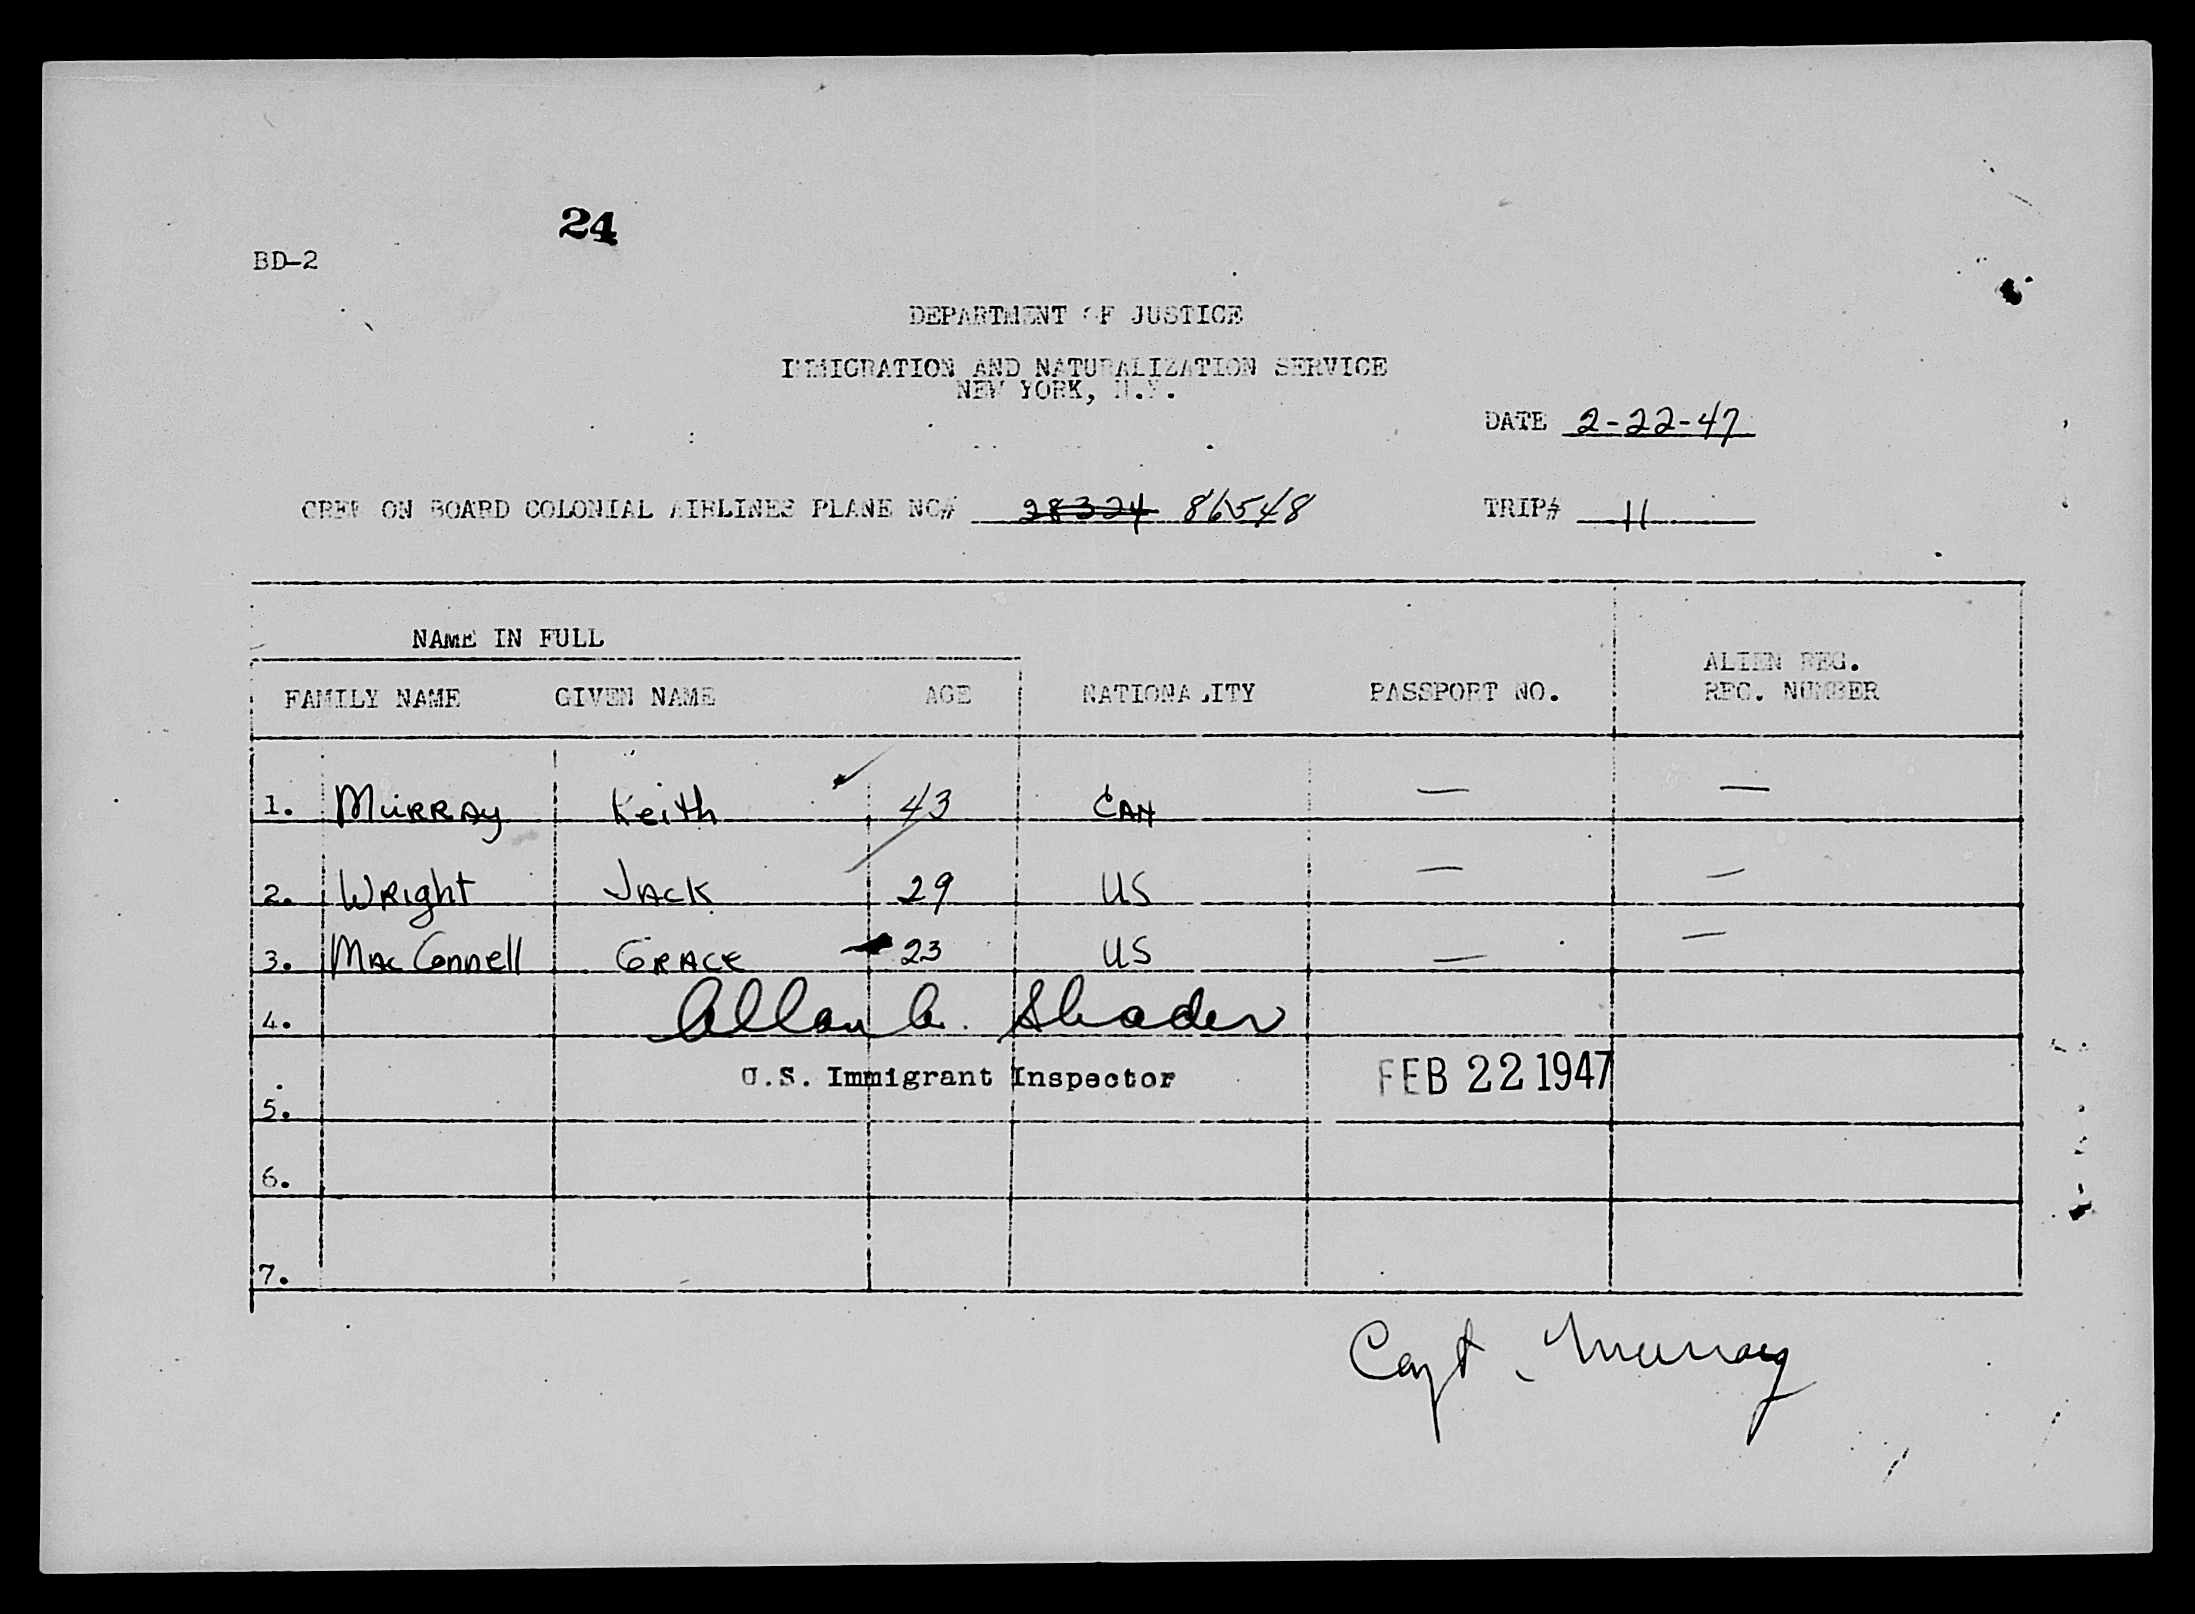 24
BD-2
DEPARTMENT OF JUSTICE
IMMIGRATION AND NATURALIZATION SERVICE
NEW YORK, N.Y.
DATE 2-22-47
CREW ON BOARD COLONIAL AIRLINES PLANE NO# 28324 86548 TRIP# 11
NAME IN FULL
FAMILY NAME GIVEN NAME AGE NATIONALITY PASSPORT NO. ALIEN REG. REC. NUMBER
1. MURRAY Keith 43 CAN — —
2. WRight JACK 29 US — —
3. MacConnell GRACE 23 US — —
4. Allan A. Shader
U.S. Immigrant Inspector FEB 22 1947
5.
6.
7.
Capt. Murray